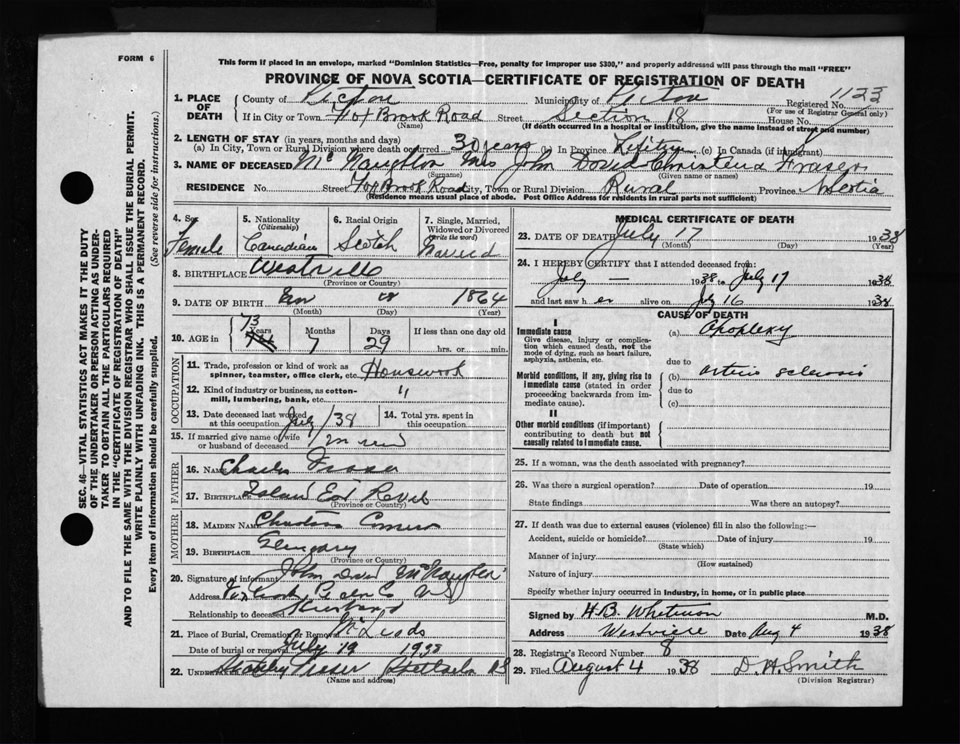 FORM 6
This form if placed in an envelope, marked "Dominion Statistics—Free, penalty for improper use $300," and properly addressed will pass through the mail "FREE"
PROVINCE OF NOVA SCOTIA—CERTIFICATE OF REGISTRATION OF DEATH
1123
1. PLACE OF DEATH County of Pictou Municipality of Pictou Registered No.
(For use of Registrar General only)
If in City or Town Fox Brook Road Street Section 18 House No.
(Name) (If death occurred in a hospital or institution, give the name instead of street and number)
2. LENGTH OF STAY (in years, months and days)
(a) In City, Town or Rural Division where death occurred 30 years (b) In Province Lifetime (c) In Canada (if immigrant)
3. NAME OF DECEASED McNaughton Mrs John David Christena Fraser
(Surname) (Given name or names)
RESIDENCE No. Street Fox Brook Road City, Town or Rural Division Rural Province N Scotia
(Residence means usual place of abode. Post Office Address for residents in rural parts not sufficient)
4. Sex Female
5. Nationality (Citizenship) Canadian
6. Racial Origin Scotch
7. Single, Married, Widowed or Divorced (Write the word) Married
8. BIRTHPLACE Westville
(Province or Country)
9. DATE OF BIRTH 1864
(Month) (Day) (Year)
10. AGE in 73 Years 7 Months 29 Days If less than one day old
hrs. or min.
OCCUPATION
11. Trade, profession or kind of work as spinner, teamster, office clerk, etc. Housework
12. Kind of industry or business, as cotton-mill, lumbering, bank, etc. "
13. Date deceased last worked at this occupation July/38
14. Total yrs. spent in this occupation
15. If married give name of wife or husband of deceased
FATHER
16. NAME Charles Fraser
17. BIRTHPLACE Island East River
(Province or Country)
MOTHER
18. MAIDEN NAME Christena
19. BIRTHPLACE Glengary
(Province or Country)
20. Signature of informant John David McNaughton
Address Fox Brook Pictou Co NS
Relationship to deceased Husband
21. Place of Burial, Cremation or Removal McLeods
Date of burial or removal July 19 1938
22. UNDERTAKER Fraser Stellarton NS
(Name and address)
MEDICAL CERTIFICATE OF DEATH
23. DATE OF DEATH July 17 1938
(Month) (Day) (Year)
24. I HEREBY CERTIFY that I attended deceased from:
July — 1938 to July 17 1938
and last saw her alive on July 16 1938
CAUSE OF DEATH
I
Immediate cause (a) Apoplexy
Give disease, injury or complication which caused death, not the mode of dying, such as heart failure, asphyxia, asthenia, etc.
due to
Morbid conditions, if any, giving rise to immediate cause (stated in order proceeding backwards from immediate cause). (b) Arterio sclerosis
due to
(c)
II
Other morbid conditions (if important) contributing to death but not causally related to immediate cause.
25. If a woman, was the death associated with pregnancy?
26. Was there a surgical operation? Date of operation 19
State findings Was there an autopsy?
27. If death was due to external causes (violence) fill in also the following:—
Accident, suicide or homicide? Date of injury 19
(State which)
Manner of injury
(How sustained)
Nature of injury
Specify whether injury occurred in industry, in home, or in public place
Signed by H.B. Whitman M.D.
Address Westville Date Aug 4 1938
28. Registrar's Record Number 8
29. Filed August 4 1938 D. H. Smith
(Division Registrar)
SEC. 46—VITAL STATISTICS ACT MAKES IT THE DUTY
OF THE UNDERTAKER OR PERSON ACTING AS UNDER-
TAKER TO OBTAIN ALL THE PARTICULARS REQUIRED
IN THE "CERTIFICATE OF REGISTRATION OF DEATH"
AND TO FILE THE SAME WITH THE DIVISION REGISTRAR WHO SHALL ISSUE THE BURIAL PERMIT.
WRITE PLAINLY WITH UNFADING INK. THIS IS A PERMANENT RECORD.
Every item of information should be carefully supplied. (See reverse side for instructions.)